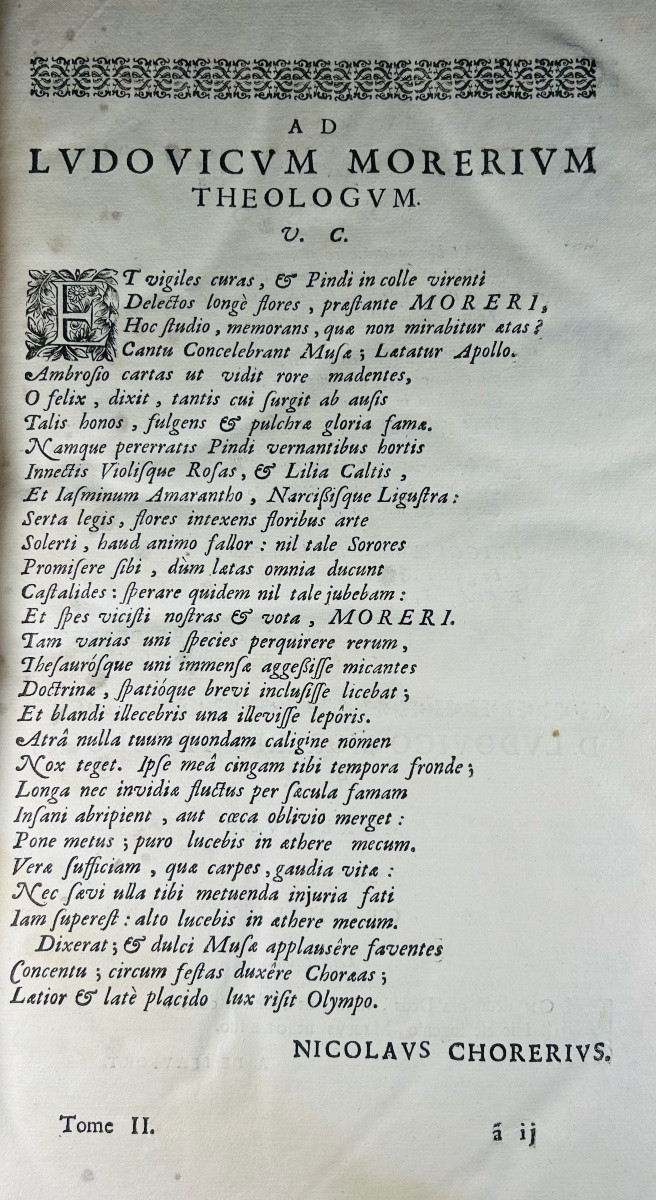 AD
LVDOVICVM MORERIVM
THEOLOGVM.
V. C.
ET vigiles curas, & Pindi in colle virenti
Delectos longè flores, præstante MORERI,
Hoc ſtudio, memorans, quæ non mirabitur ætas?
Cantu Concelebrant Muſæ; Lætatur Apollo.
Ambroſio cartas ut vidit rore madentes,
O felix, dixit, tantis cui ſurgit ab auſis
Talis honos, fulgens & pulchræ gloria famæ.
Namque pererratis Pindi vernantibus hortis
Innectis Violiſque Roſas, & Lilia Caltis,
Et Iaſminum Amarantho, Narcißiſque Liguſtra:
Serta legis, flores intexens floribus arte
Solerti, haud animo fallor: nil tale Sorores
Promiſere ſibi, dùm lætas omnia ducunt
Caſtalides: ſperare quidem nil tale jubebam:
Et ſpes viciſti noſtras & vota, MORERI.
Tam varias uni ſpecies perquirere rerum,
Theſauróſque uni immenſæ aggeßiſſe micantes
Doctrinæ, ſpatióque brevi incluſiſſe licebat;
Et blandi illecebris una illeviſſe lepôris.
Atrâ nulla tuum quondam caligine nomen
Nox teget. Ipſe meâ cingam tibi tempora fronde;
Longa nec invidiæ fluctus per ſæcula famam
Inſani abripient, aut cœca oblivio merget:
Pone metus; puro lucebis in æthere mecum.
Veræ ſufficiam, quæ carpes, gaudia vitæ:
Nec ſævi ulla tibi metuenda injuria fati
Iam ſupereſt: alto lucebis in æthere mecum.
Dixerat; & dulci Muſæ applausêre faventes
Concentu; circum feſtas duxêre Choræas;
Lætior & latè placido lux riſit Olympo.
NICOLAVS CHORERIVS.
Tome II.
ã ij